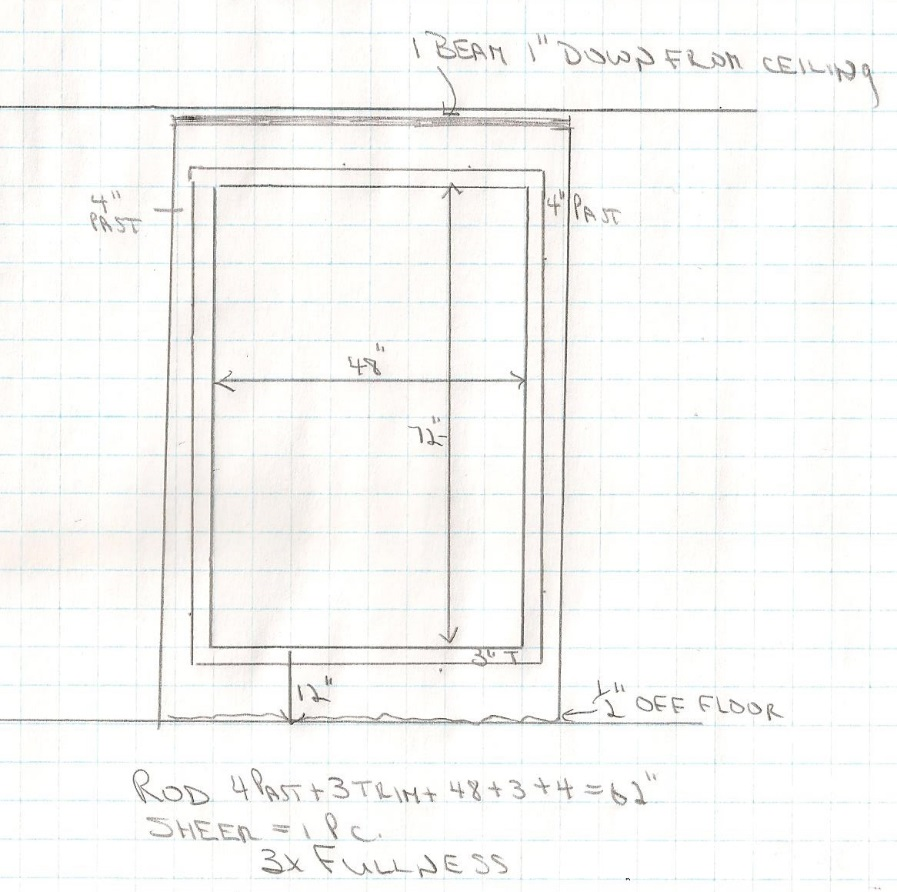 I BEAM 1" DOWN FROM CEILING
4"
PAST
4" PAST
48"
72"
3" T
12"
1/2" OFF FLOOR
ROD 4 PAST + 3 TRIM + 48 + 3 + 4 = 62"
SHEER = 1 PC.
3X FULLNESS